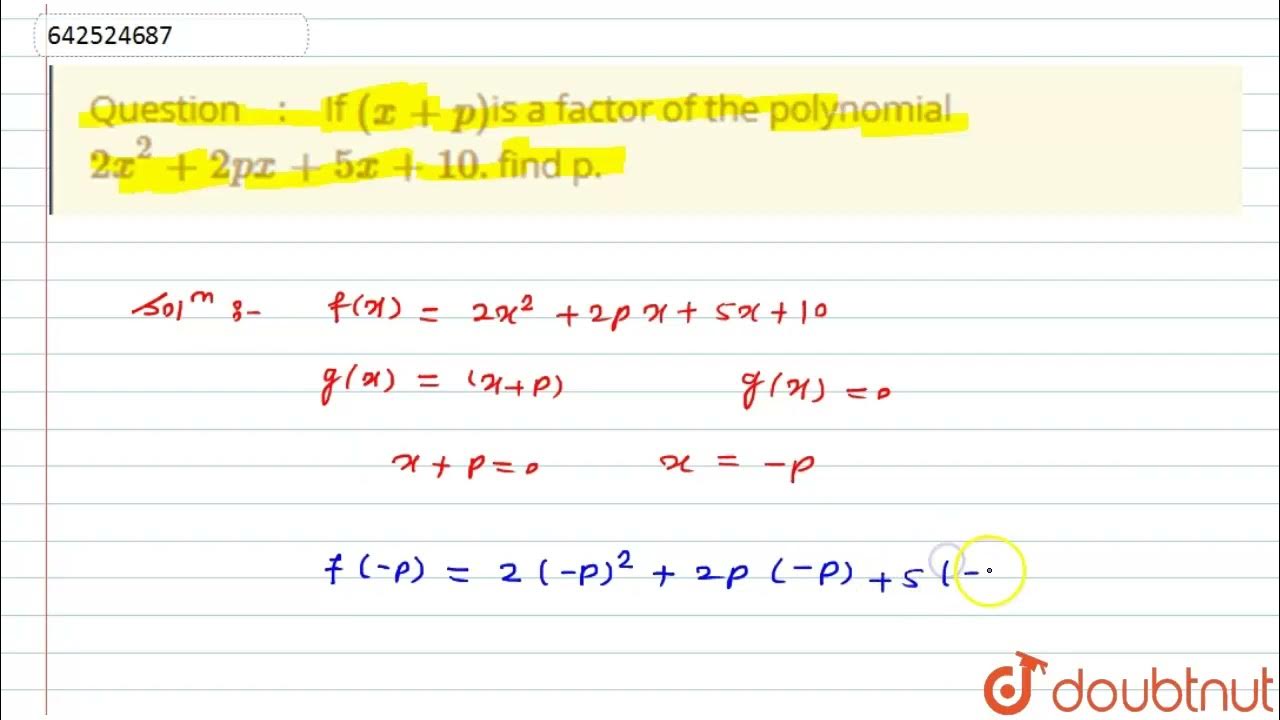 642524687
Question : If (x + p)is a factor of the polynomial
2x² + 2px + 5x + 10. find p.
Solⁿ :- f(x) = 2x² + 2p x + 5x + 10
g(x) = (x+p) g(x) = 0
x + p = 0 x = -p
f(-p) = 2(-p)² + 2p (-p) + 5(-
doubtnut